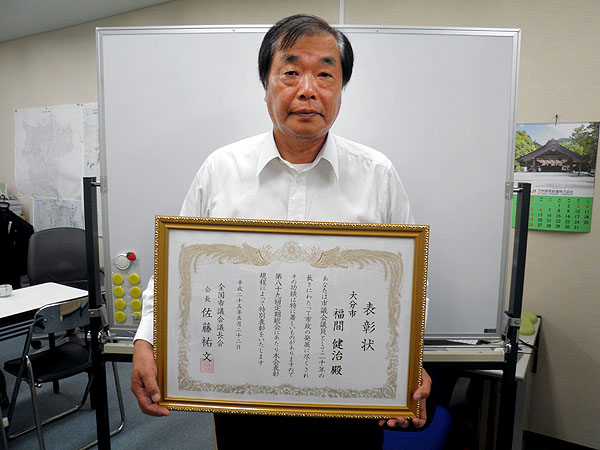 表彰状
大分市
福間健治殿
あなたは市議会議員として二十年の
長きにわたって市政の発展に尽くされ
その功績は特に著しいものがありますので
第八十九回定期総会にあたり本会表彰
規程によって特別表彰をいたします
平成二十五年五月二十二日
全国市議会議長会
会長 佐藤祐文